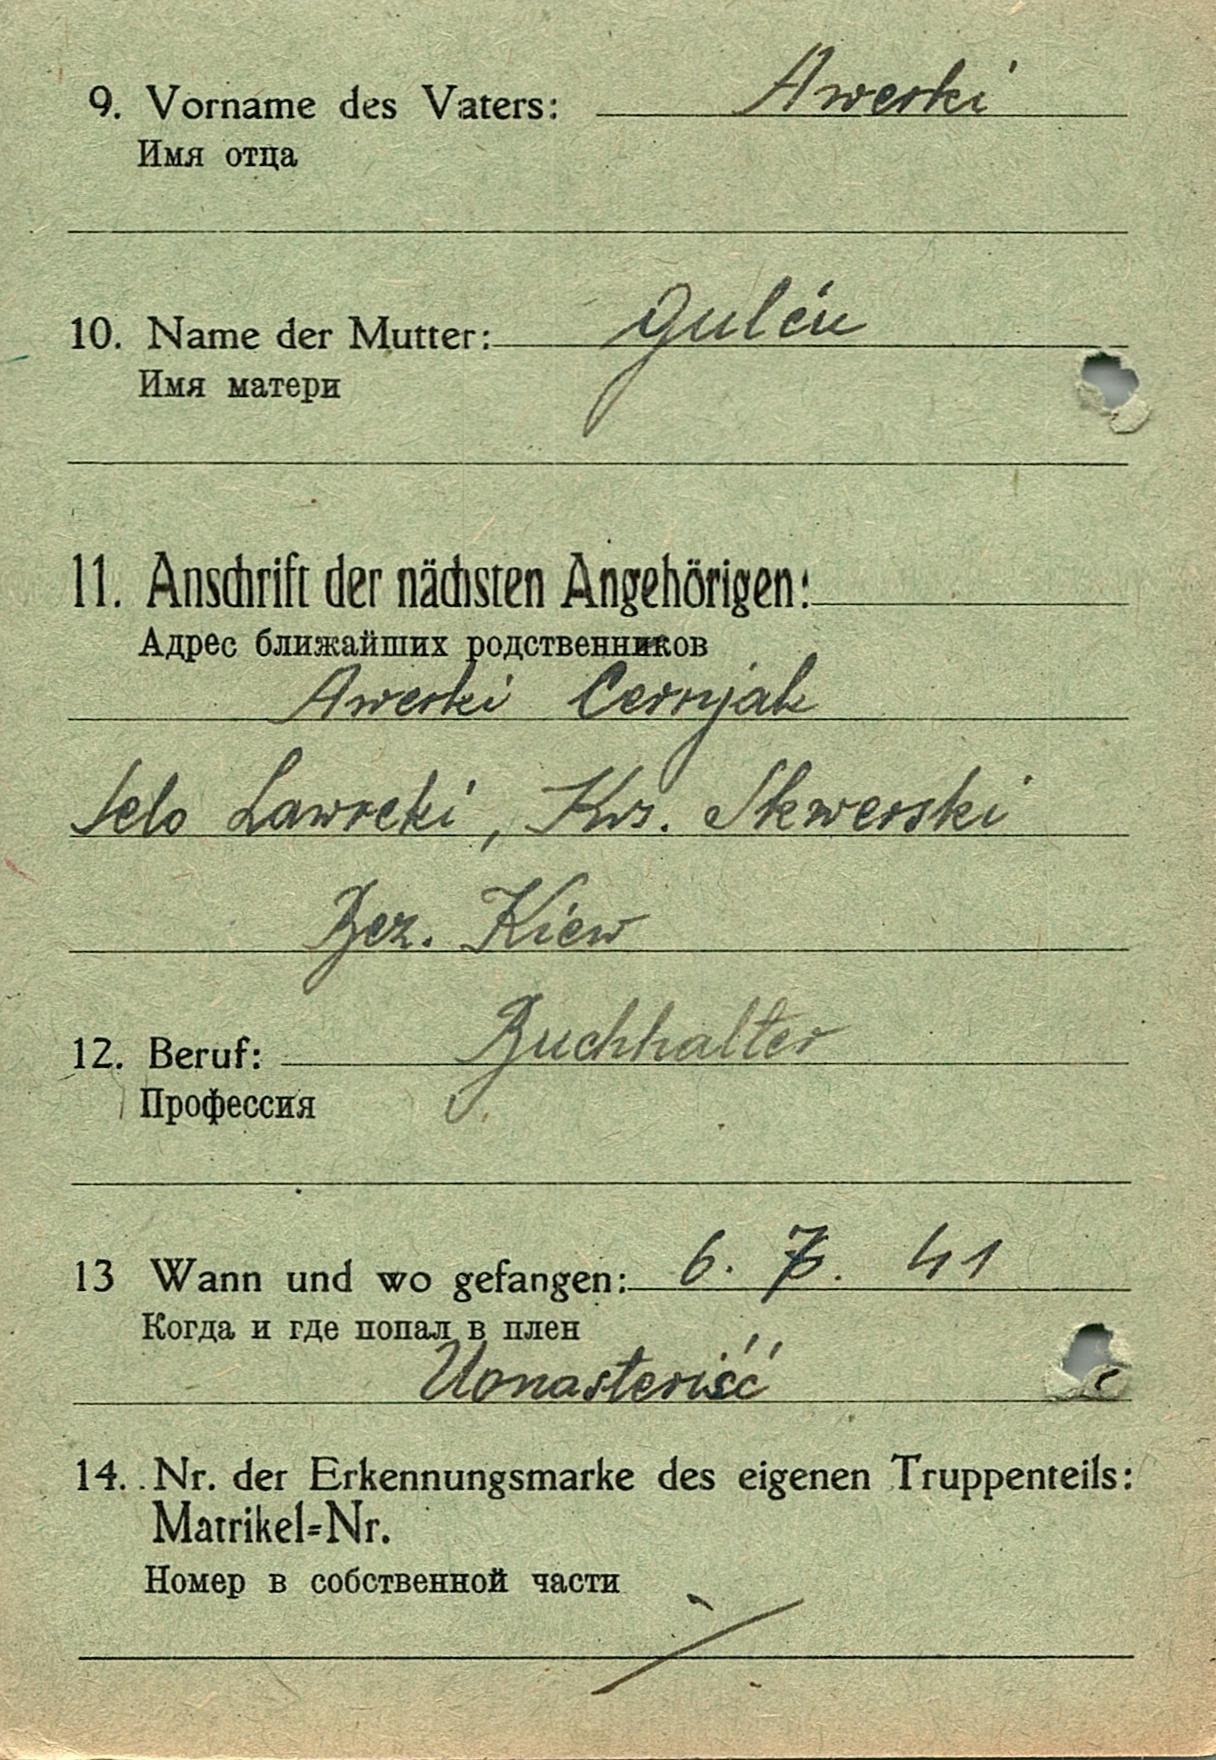 9. Vorname des Vaters: Awerki
Имя отца
10. Name der Mutter:
Имя матери
11. Anschrift der nächsten Angehörigen:
Адрес ближайших родственников
Awerki Cernjak
Selo Lawreki, Krs. Skwerski
Bez. Kiew
12. Beruf: Buchhalter
Профессия
13 Wann und wo gefangen: 6. 7. 41
Когда и где попал в плен
Monasterišč
14. Nr. der Erkennungsmarke des eigenen Truppenteils:
Matrikel=Nr.
Номер в собственной части